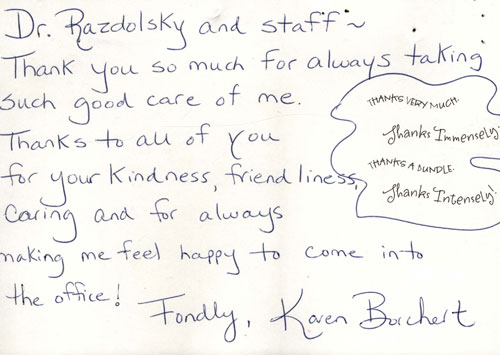 Dr. Razdolsky and staff ~
Thank you so much for always taking
such good care of me.
Thanks to all of you
for your kindness, friendliness,
caring and for always
making me feel happy to come into
the office!
Fondly, Karen Borchert
THANKS VERY MUCH.
Thanks Immensely.
THANKS A BUNDLE.
Thanks Intensely.